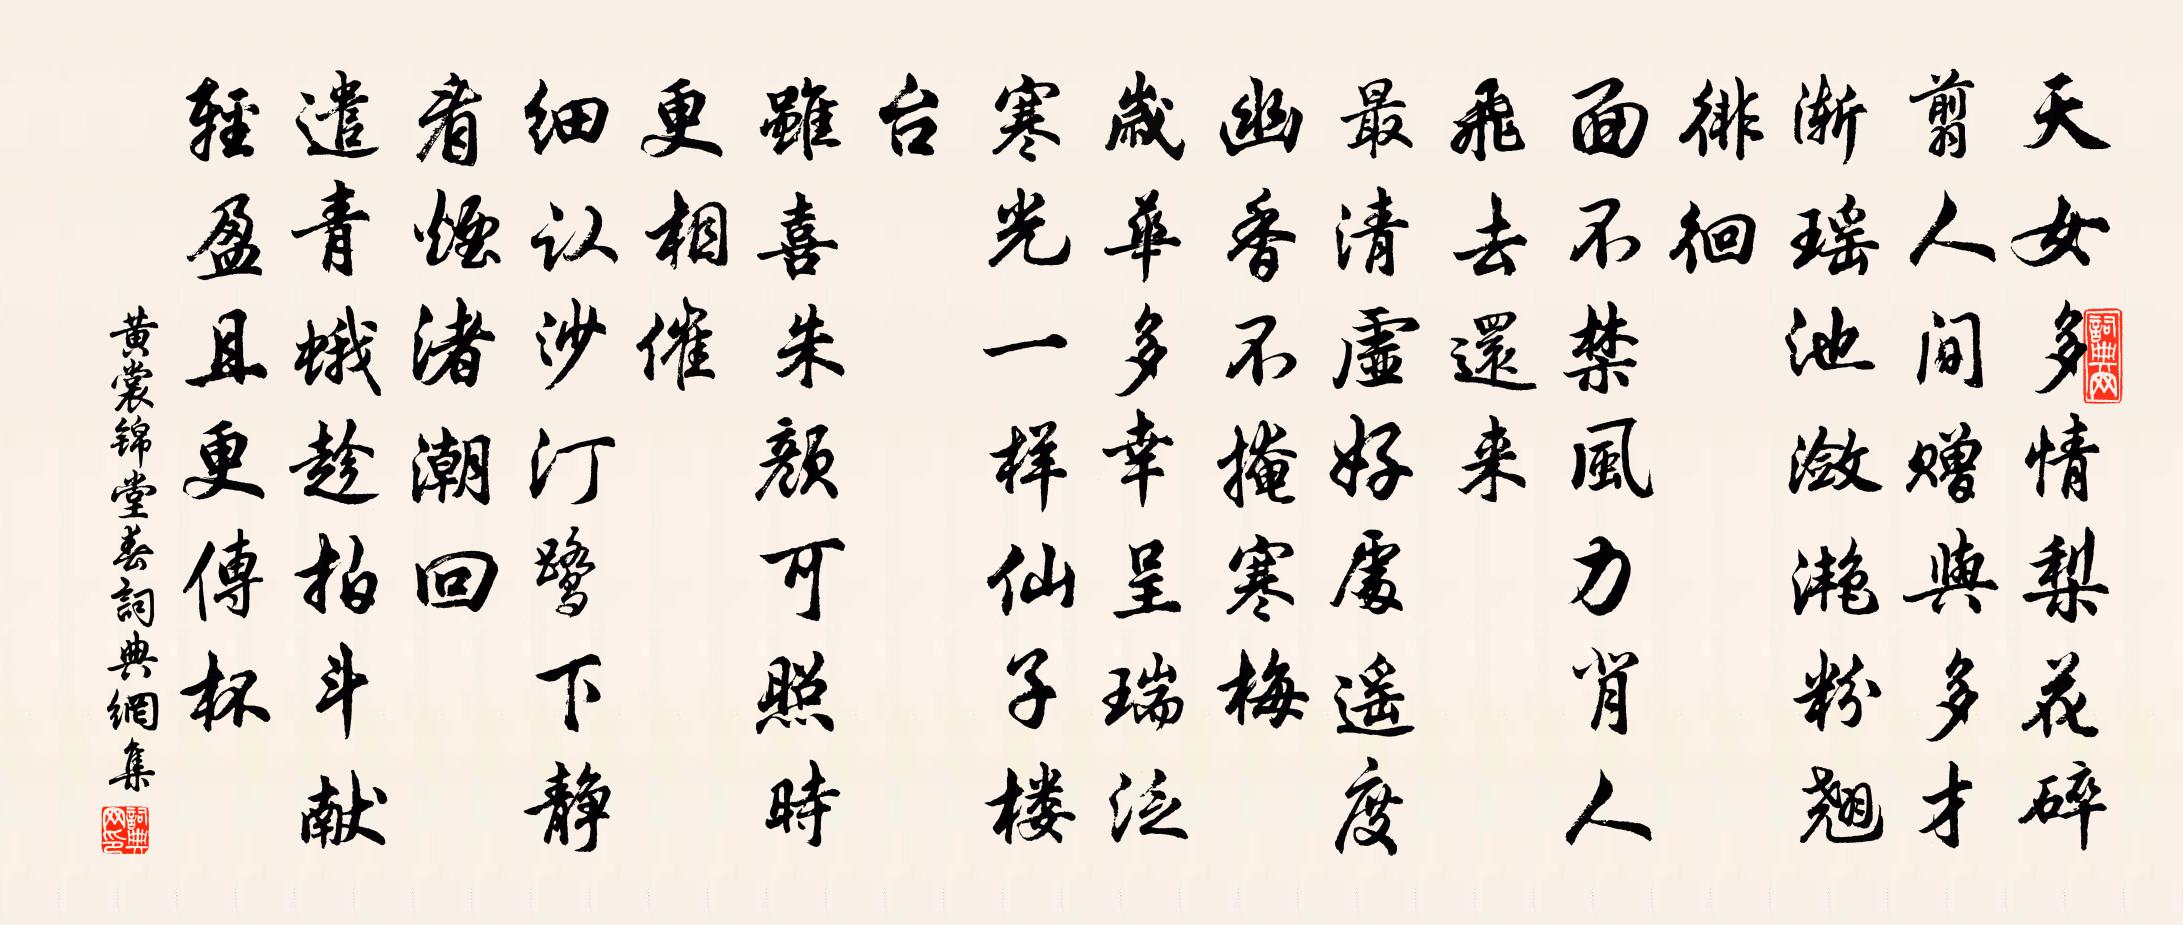 天女多情梨花碎
剪人间赠與多才
渐瑶池潋滟粉翘
徘徊
面不禁風力肖人
飛去還来
最清虛好處遥度
幽香不掩寒梅
歲華多幸呈瑞泛
寒光一样仙子楼
台
雖喜朱颜可照時
更相催
细认沙汀鹭下静
看煙渚潮回
遣青蛾趁拍斗献
輕盈且更傳杯
黄裳锦堂春詞典網集
詞典网
詞典网印